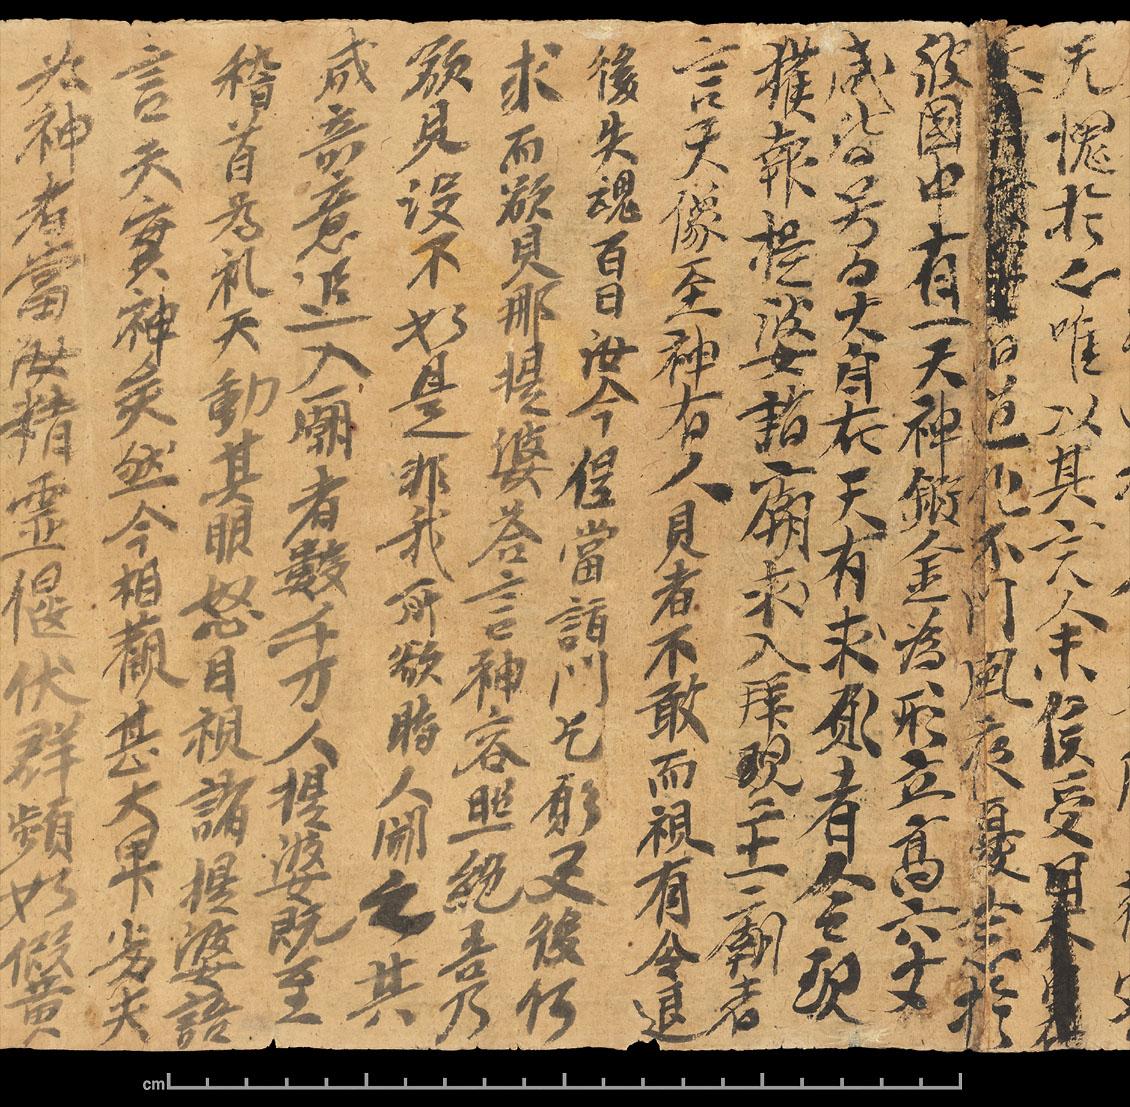 无愧於心唯以其六人未侯受用
道化不行夙夜憂念於
彼國中有一天神鎔金為形立高六丈
咸皆号曰大自在天有求願者令現
獲報提婆詣廟求入拜現主廟者
言天像至神有人見者不敢而視有令退
後失魂百日汝今但當詣門乞願又後何
求而欲見耶提婆答言神容照絕吾乃
欲見設不如是非我所欲時人聞之其
咸奇意追入廟者數千万人提婆既至
稽首为礼天動其眼怒目視諸提婆語
言天實神矣然今相觀甚大卑劣夫
为神者當汝精靈偃伏群頻如假黃